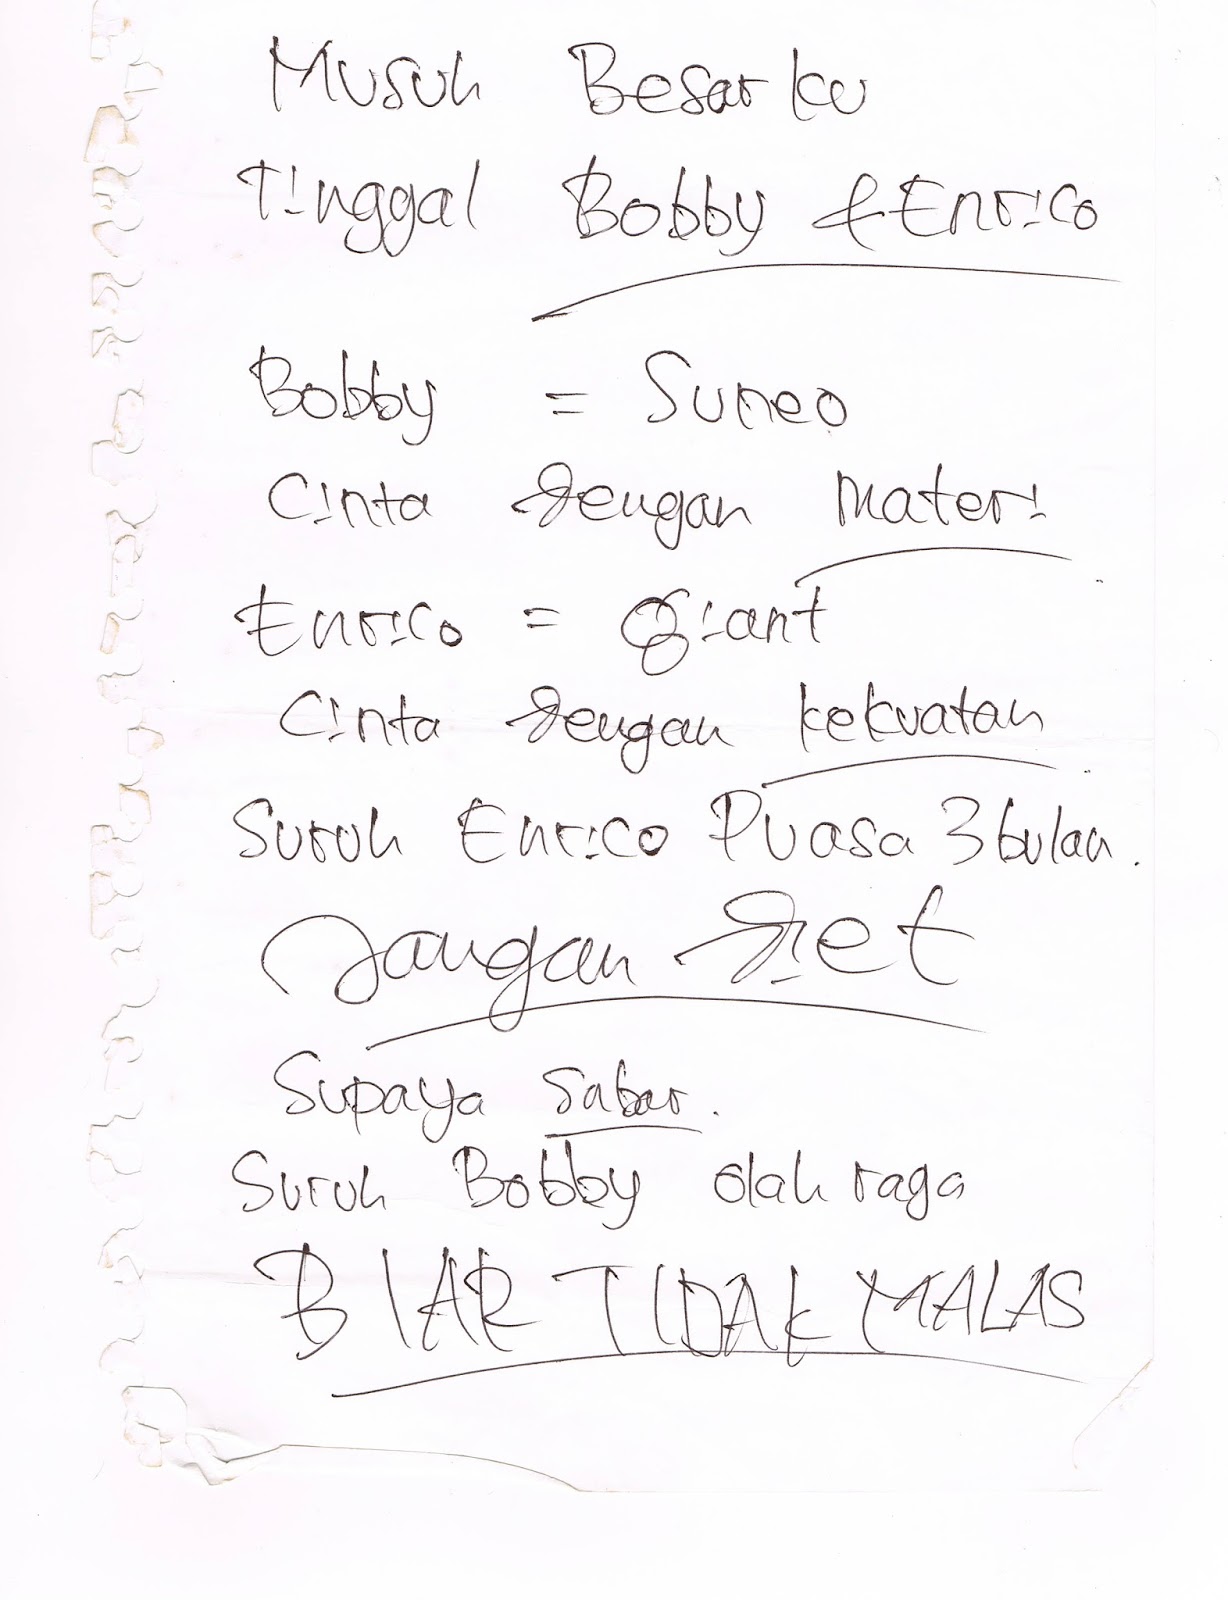 Musuh Besarku
Tinggal Bobby & Enrico
Bobby = Suneo
Cinta dengan materi
Enrico = Giant
Cinta dengan kekuatan
Suruh Enrico Puasa 3 bulan.
Jangan diet
Supaya sabar.
Suruh Bobby olah raga
BIAR TIDAK MALAS